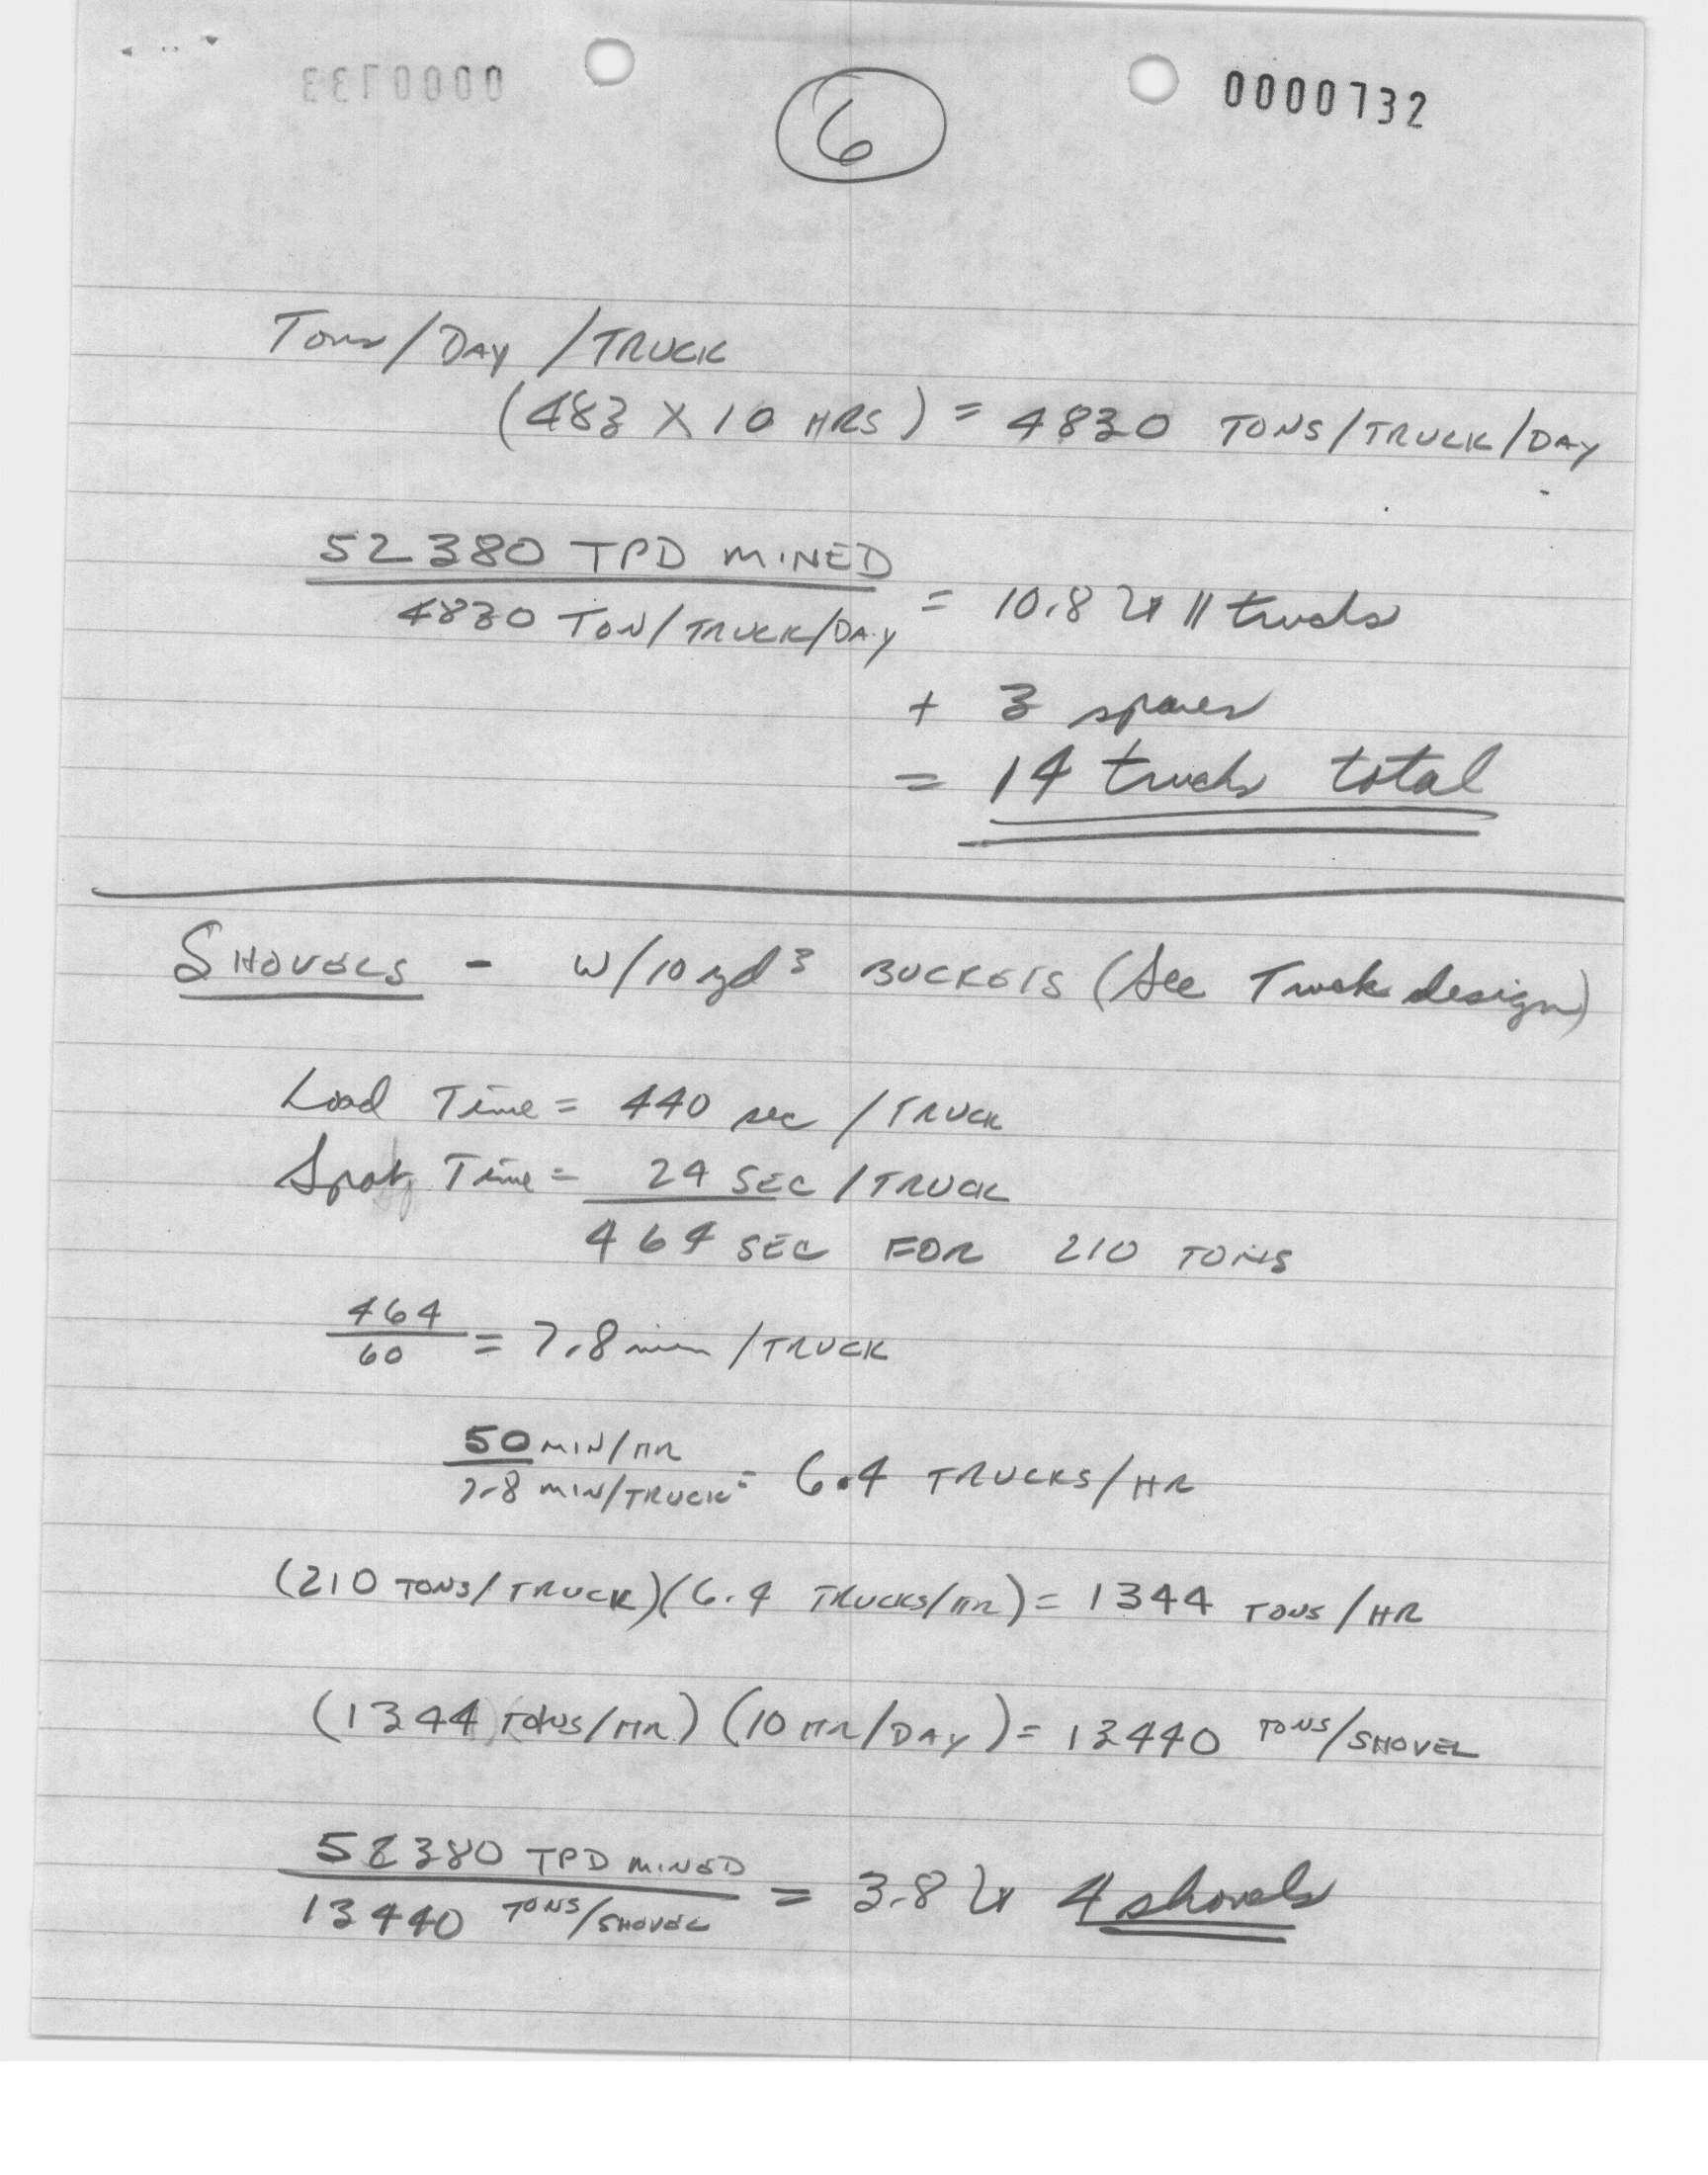 0000733
6
0000732
Tons/DAY/TRUCK
(483 X 10 HRS) = 4830 TONS/TRUCK/DAY
52380 TPD MINED
4830 TON/TRUCK/DAY
= 10.8 11 trucks
+ 3 spares
= 14 trucks total
SHOVELS - W/10 yd³ BUCKETS (See Truck design)
Load Time = 440 sec/TRUCK
Spot Time = 24 SEC/TRUCK
464 SEC FOR 210 TONS
464
60
= 7.8 min/TRUCK
50 MIN/HR
7.8 MIN/TRUCK
= 6.4 TRUCKS/HR
(210 TONS/TRUCK)(6.4 TRUCKS/HR) = 1344 TONS/HR
(1344 TONS/HR)(10 HR/DAY) = 13440 TONS/SHOVEL
52380 TPD MINED
13440 TONS/SHOVEL
= 3.8 4 shovels